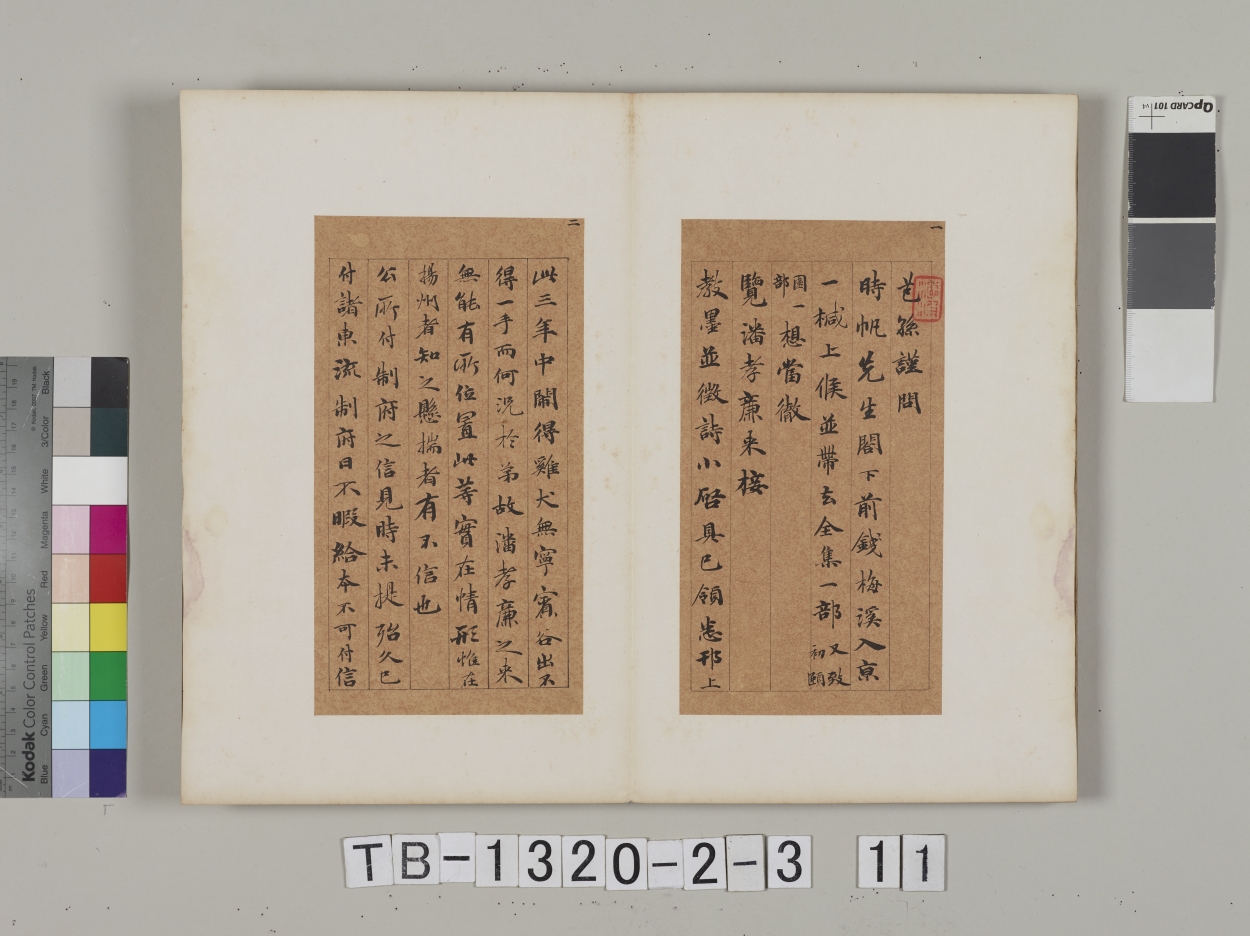 一
芑孫謹問
時帆先生閣下前錢梅溪入京
一椷上候並帶去全集一部又致初頤
園一部想當徹
覽潘孝廉來接
教墨並徵詩小啓具已領悉邗上
二
此三年中閙得雞犬無寧賓谷出不
得一手而何況於弟故潘孝廉之來
無能有所位置此等實在情形惟在
揚州者知之懸揣者有不信也
公所付制府之信見時未提殆久已
付諸東流制府日不暇給本不可付信
QPCARD 101 v4
Kodak Color Control Patches
© Kodak, 2007 TM: Kodak
Blue
Cyan
Green
Yellow
Red
Magenta
White
3/Color
Black
TB-1320-2-3 11